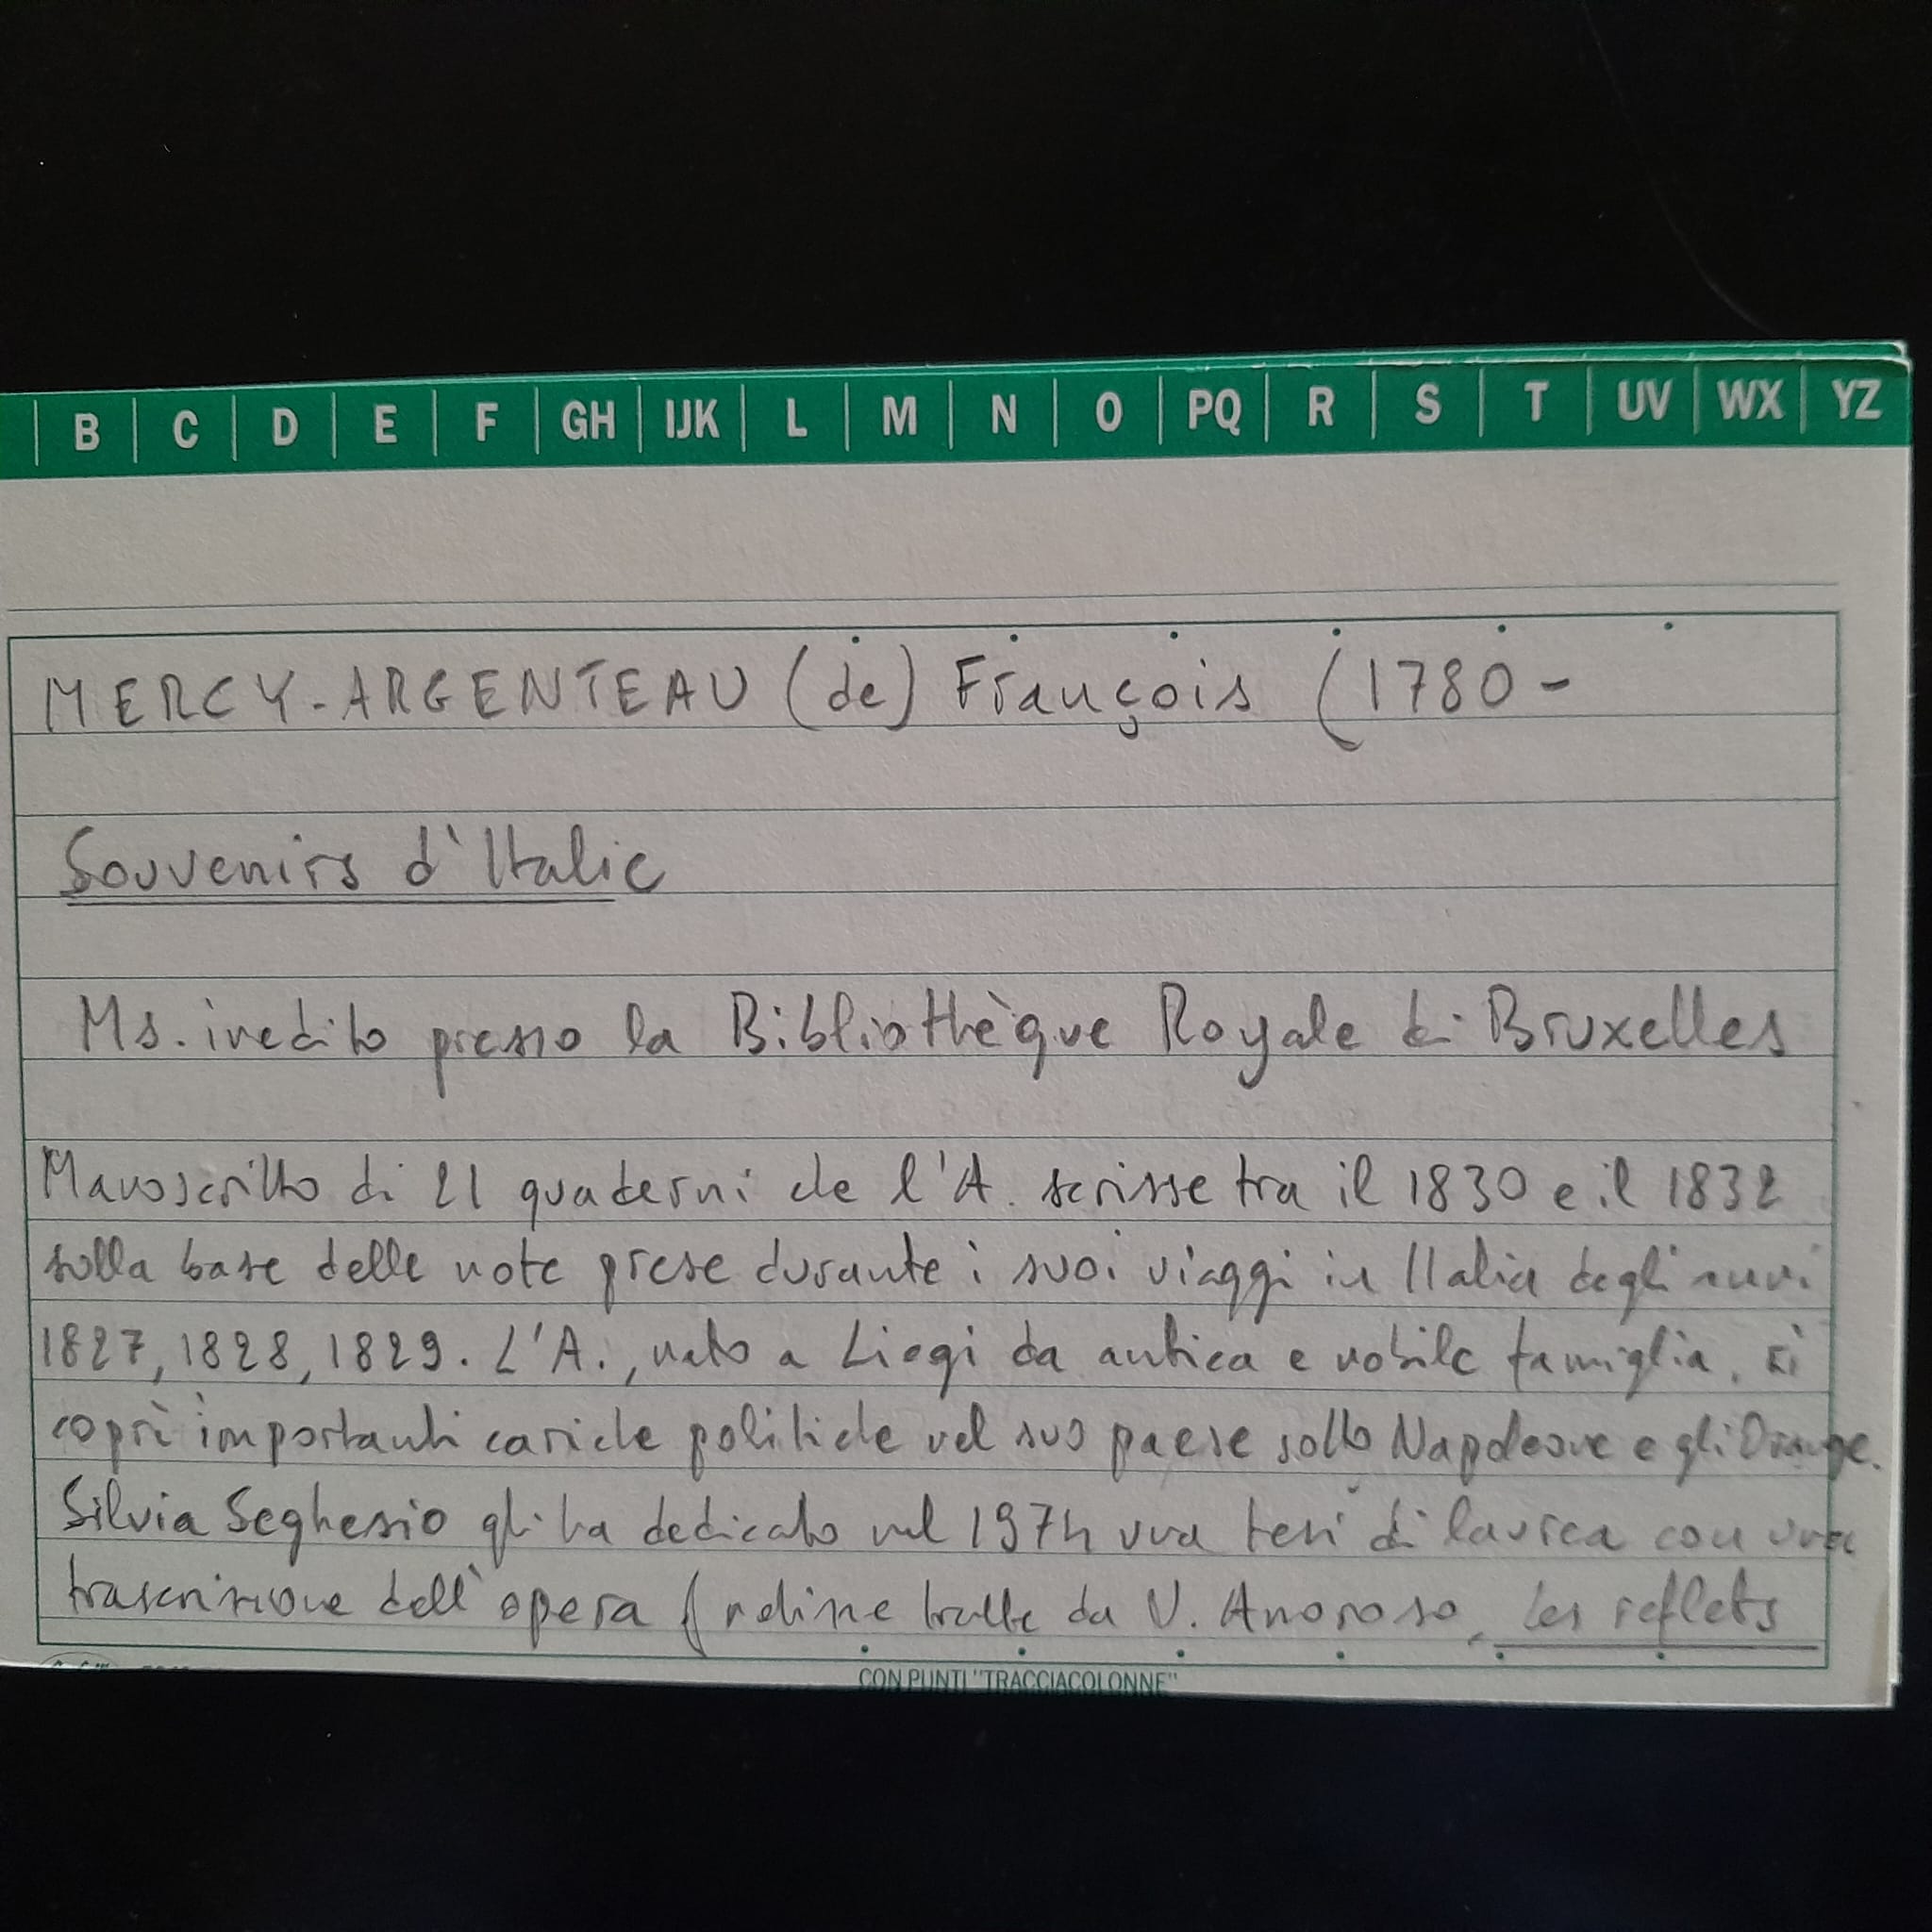 B C D E F GH IJK L M N O PQ R S T UV WX YZ
MERCY-ARGENTEAU (de) François (1780-
Souvenirs d'Italie
Ms. inedito presso la Bibliothèque Royale di Bruxelles
Manoscritto di 21 quaderni che l'A. scrisse tra il 1830 e il 1832
sulla base delle note prese durante i suoi viaggi in Italia degli anni
1827, 1828, 1829. L'A., nato a Liegi da antica e nobile famiglia, ri
coprì importanti cariche politiche nel suo paese sotto Napoleone e gli Orange.
Silvia Seghesio gli ha dedicato nel 1974 una tesi di laurea con una
trascrizione dell'opera ( notizie tratte da V. Amoroso, Les reflets
CON PUNTI "TRACCIACOLONNE"